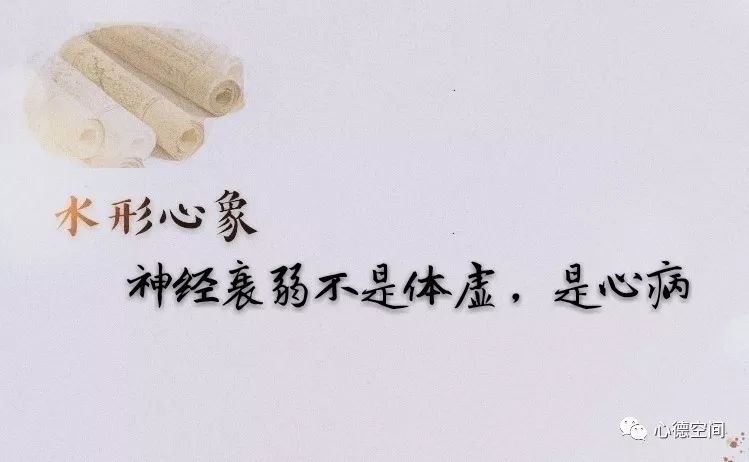 水形心象
神经衰弱不是体虚，是心病
心德空间